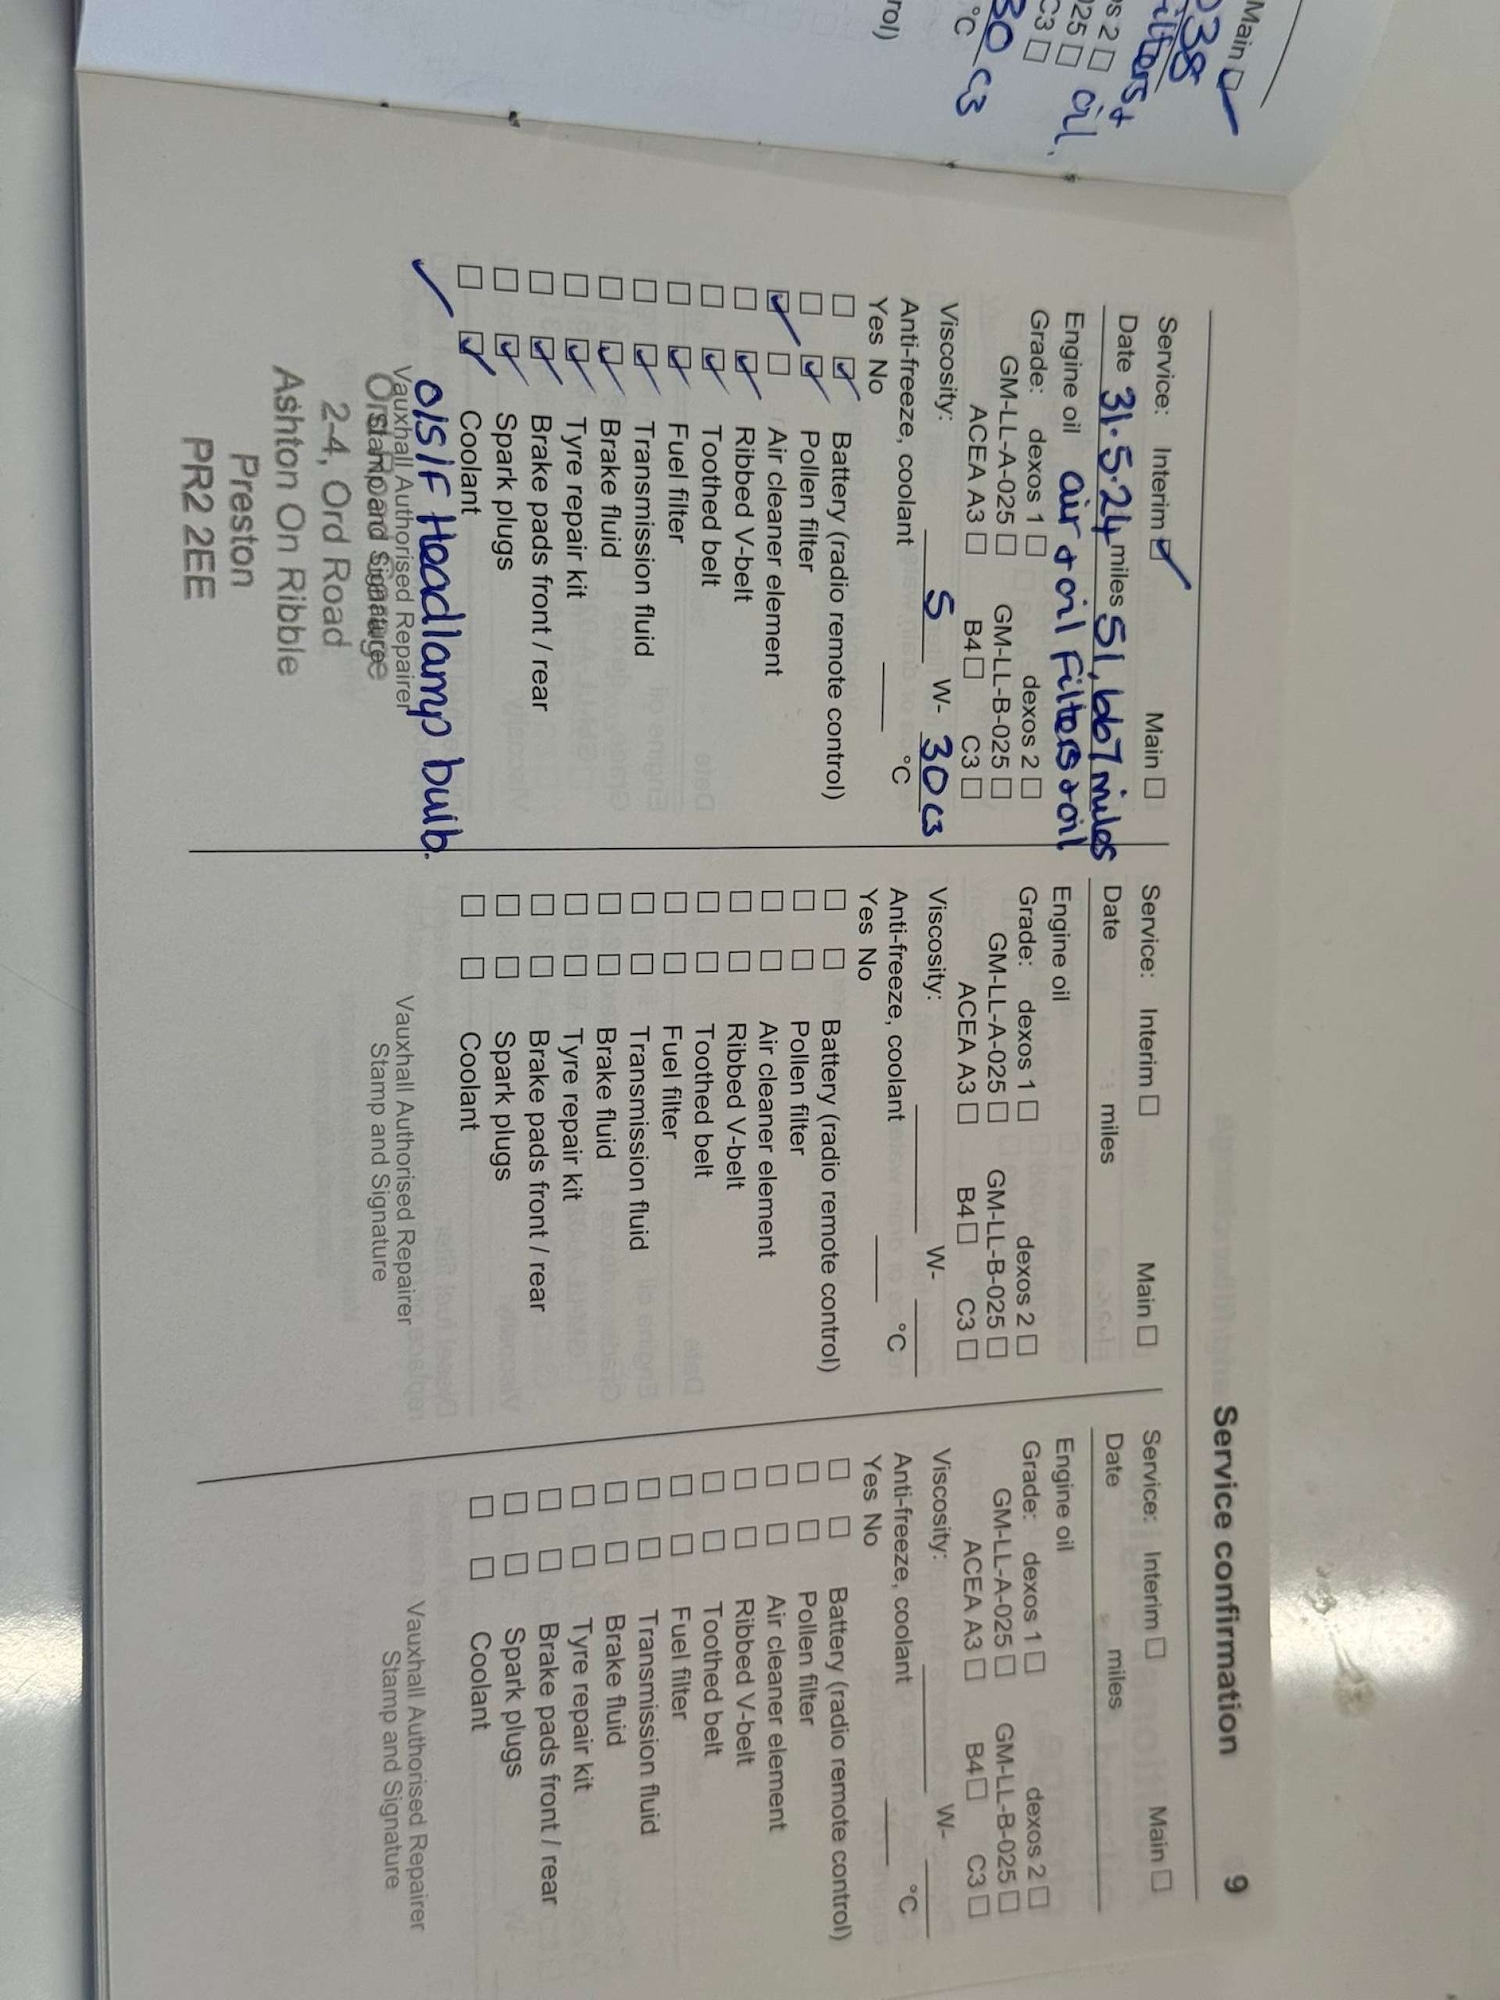 Main ☑
038
ilters +
s 2 ☐ oil.
025 ☐
C3 ☐
30 C3
°C
rol)
Service confirmation 9
Service: Interim ☑ Main ☐
Date 31.5.24 miles 51,667 miles
Engine oil air + oil Filters + oil
Grade: dexos 1 ☐ dexos 2 ☐
GM-LL-A-025 ☐ GM-LL-B-025 ☐
ACEA A3 ☐ B4 ☐ C3 ☐
Viscosity: 5 W- 30 C3
Anti-freeze, coolant °C
Yes No
☐ ☑ Battery (radio remote control)
☐ ☑ Pollen filter
☑ ☐ Air cleaner element
☐ ☑ Ribbed V-belt
☐ ☑ Toothed belt
☐ ☑ Fuel filter
☐ ☑ Transmission fluid
☐ ☑ Brake fluid
☐ ☑ Tyre repair kit
☐ ☑ Brake pads front / rear
☐ ☑ Spark plugs
☐ ☑ Coolant
✓ O/S/F Headlamp bulb.
Vauxhall Authorised Repairer
Stamp and Signature
2-4, Ord Road
Ashton On Ribble
Preston
PR2 2EE
Service: Interim ☐ Main ☐
Date miles
Engine oil
Grade: dexos 1 ☐ dexos 2 ☐
GM-LL-A-025 ☐ GM-LL-B-025 ☐
ACEA A3 ☐ B4 ☐ C3 ☐
Viscosity: W-
Anti-freeze, coolant °C
Yes No
☐ ☐ Battery (radio remote control)
☐ ☐ Pollen filter
☐ ☐ Air cleaner element
☐ ☐ Ribbed V-belt
☐ ☐ Toothed belt
☐ ☐ Fuel filter
☐ ☐ Transmission fluid
☐ ☐ Brake fluid
☐ ☐ Tyre repair kit
☐ ☐ Brake pads front / rear
☐ ☐ Spark plugs
☐ ☐ Coolant
Vauxhall Authorised Repairer
Stamp and Signature
Service: Interim ☐ Main ☐
Date miles
Engine oil
Grade: dexos 1 ☐ dexos 2 ☐
GM-LL-A-025 ☐ GM-LL-B-025 ☐
ACEA A3 ☐ B4 ☐ C3 ☐
Viscosity: W-
Anti-freeze, coolant °C
Yes No
☐ ☐ Battery (radio remote control)
☐ ☐ Pollen filter
☐ ☐ Air cleaner element
☐ ☐ Ribbed V-belt
☐ ☐ Toothed belt
☐ ☐ Fuel filter
☐ ☐ Transmission fluid
☐ ☐ Brake fluid
☐ ☐ Tyre repair kit
☐ ☐ Brake pads front / rear
☐ ☐ Spark plugs
☐ ☐ Coolant
Vauxhall Authorised Repairer
Stamp and Signature